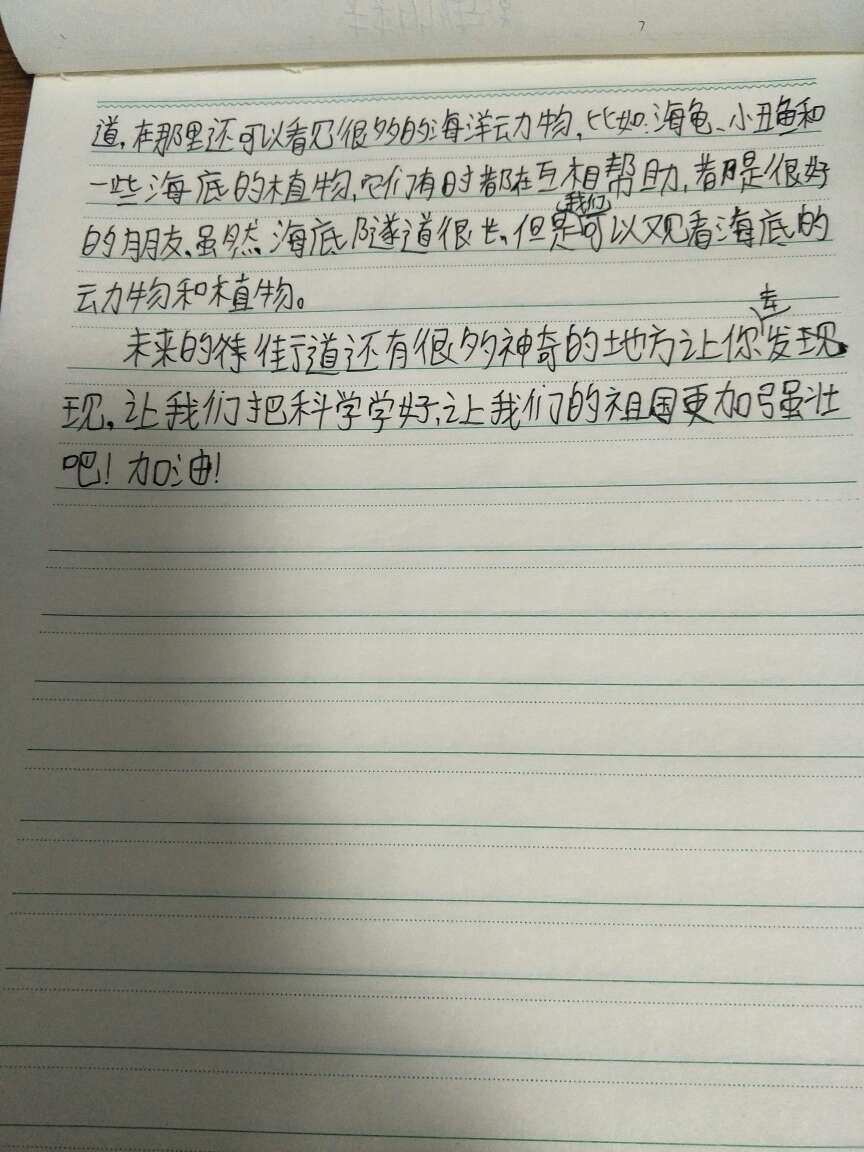 道，在那里还可以看见很多的海洋动物，比如：海龟、小丑鱼和
一些海底的植物，它们有时都在互相帮助，都是很好
的朋友。虽然，海底隧道很长，但是我们可以观看海底的
动物和植物。
未来的街道还有很多神奇的地方让你去发现
现，让我们把科学学好，让我们的祖国更加强壮
吧！加油！